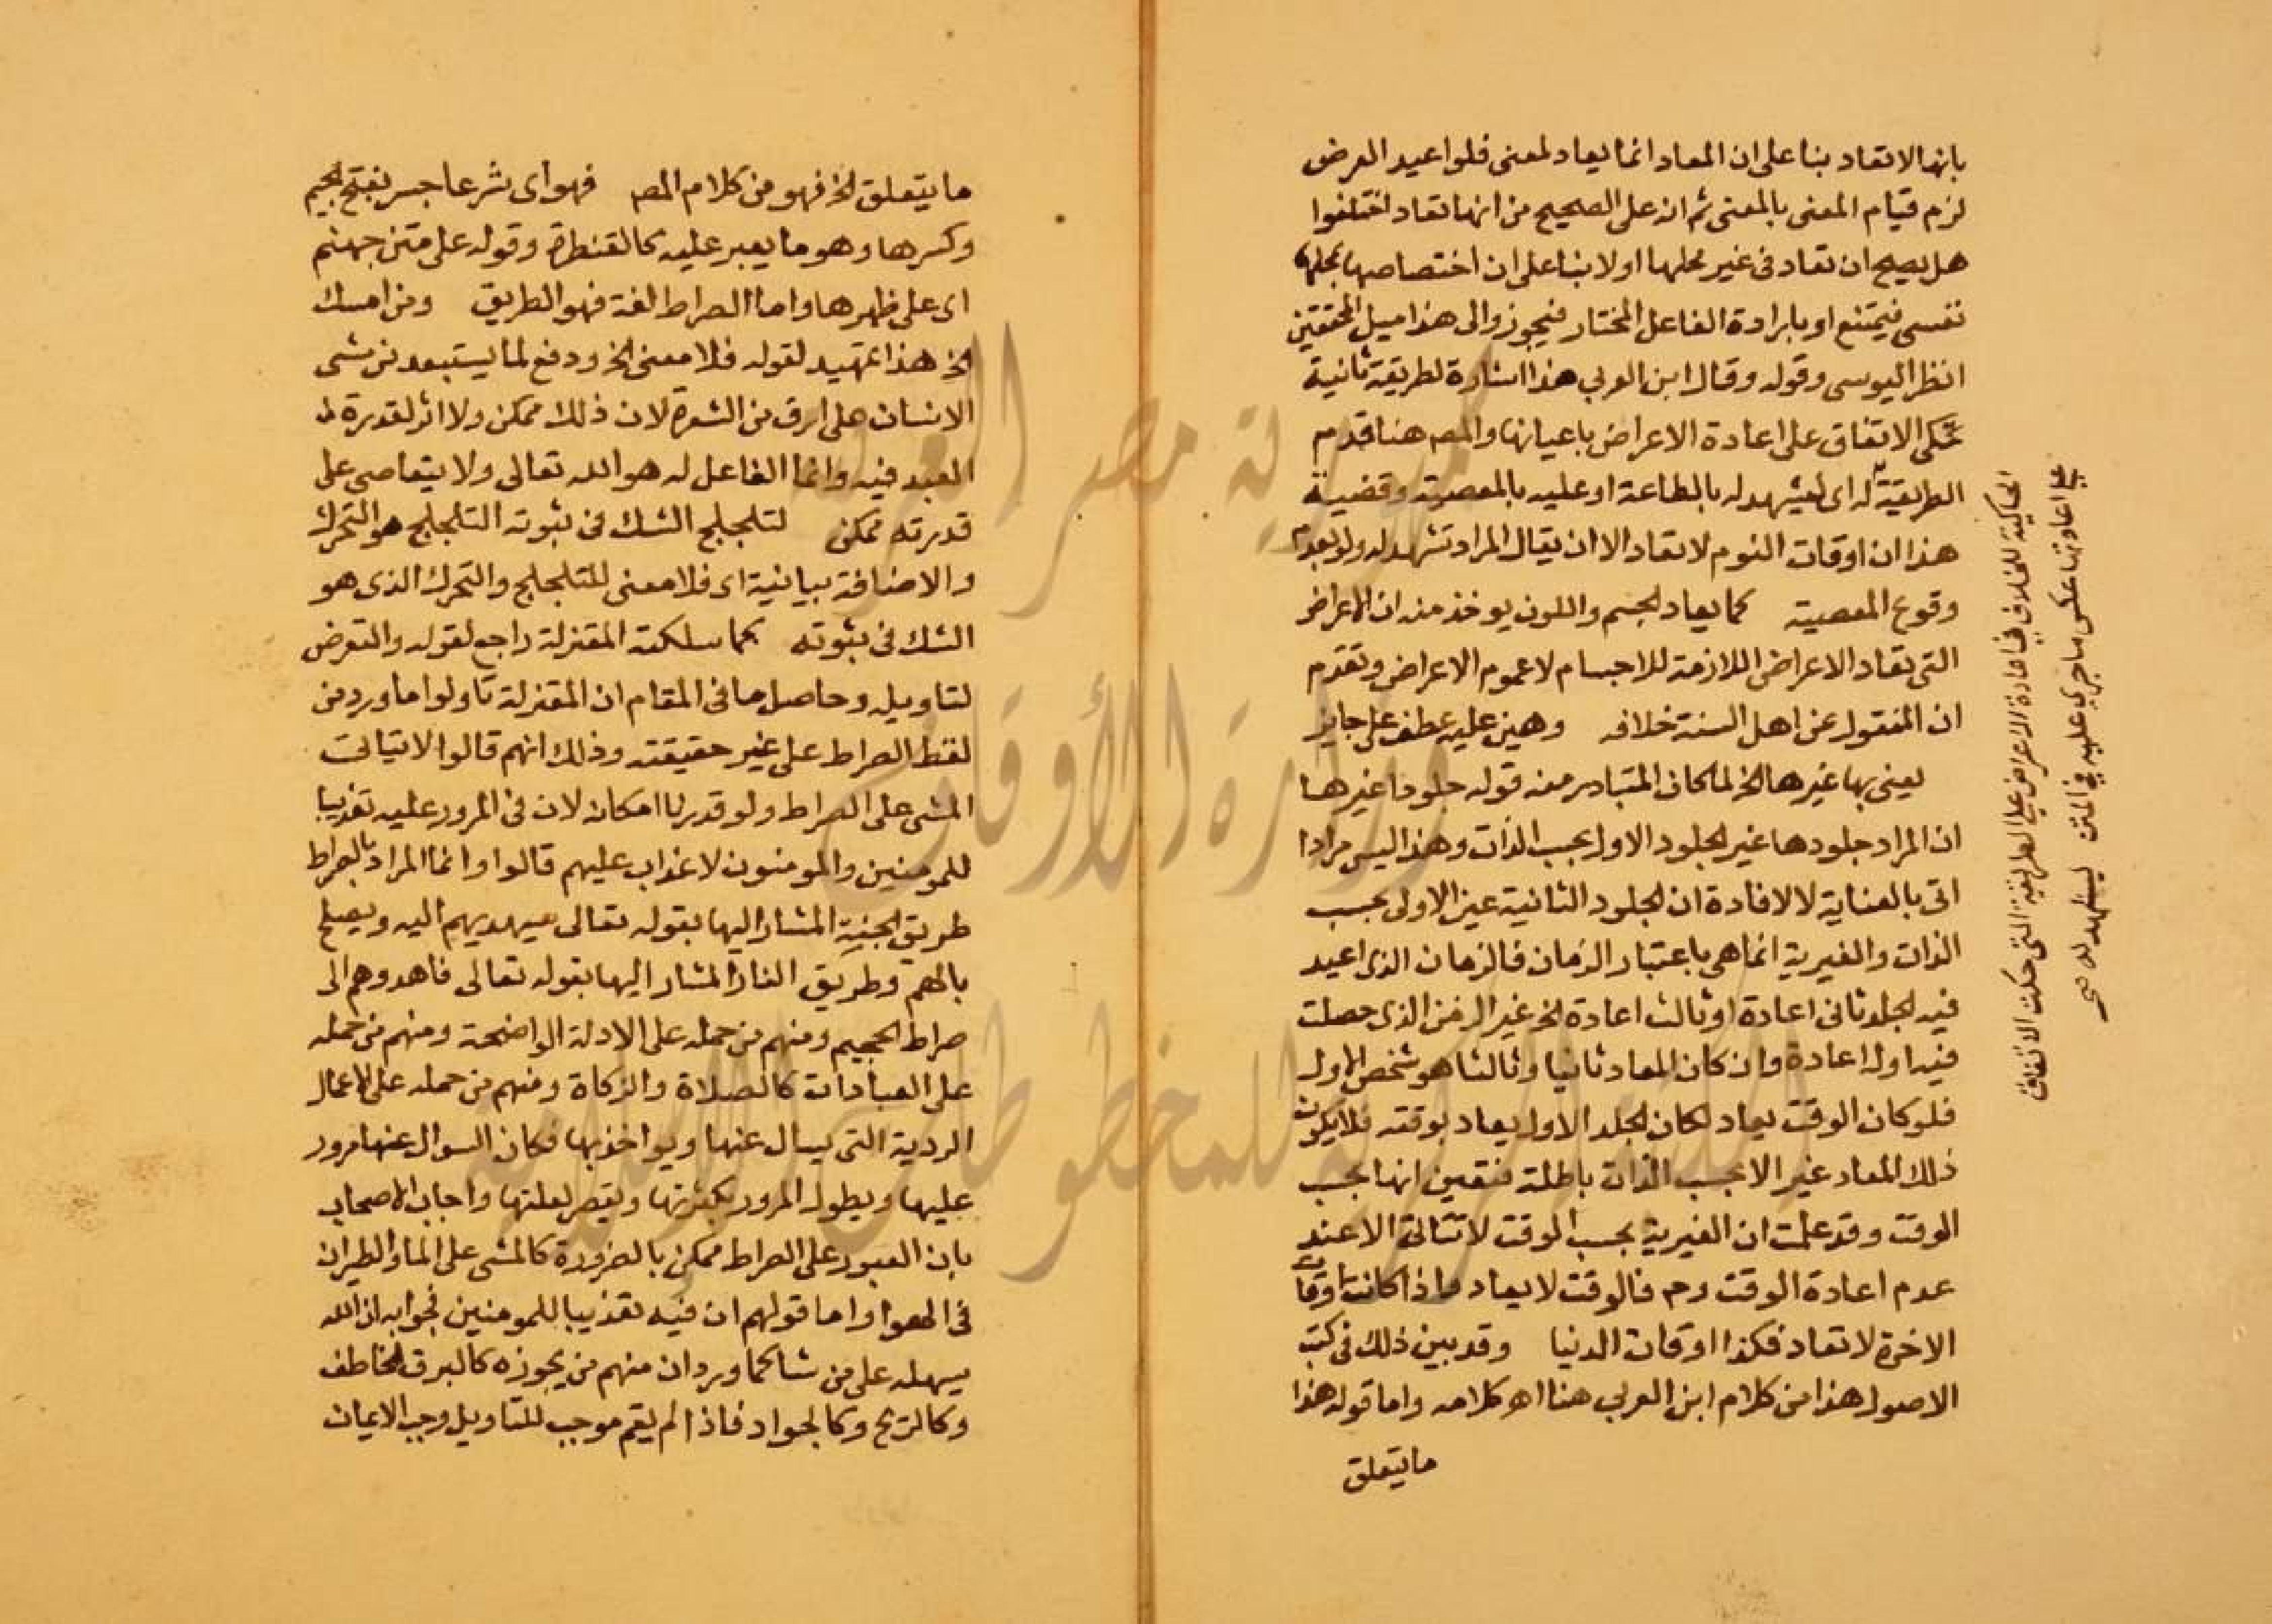 بانها لا تعاد بنا على ان المعاد انما يعاد لمعنى فلو اعيد العرض
لزم قيام المعنى بالمعنى ثم ان على الصحيح من انها تعاد اختلفوا
هل يصح ان تعاد فى غير محلها او لا بنا على ان اختصاصها بمحلها
نفسى فيمتنع او بارادة الفاعل المختار فيجوز والى هذا ميل المحققين
انظر اليوسى وقوله وقال ابن العربي هذا اشارة لطريقة ثانية
تحكى الاتفاق على اعادة الاعراض باعيانها والمصـ هنا قدم
الطريقة له اى ليشهد له بالطاعة او عليه بالمعصية وقضية
هذا ان اوقات النوم لا تعاد الا ان يقال المراد تشهد له ولو بعدم
وقوع المعصية كما يعاد الجسم واللون يوخذ منه ان الاعراض
التى تعاد الاعراض اللازمة للاجسام لا عموم الاعراض وتقدم
ان المنقول عن اهل السنة خلافه وهين عليه عطف على جايز
يعنى بها غيرها الخ لما كان المتبادر منه قوله جلودا غيرها
ان المراد جلودها غير الجلود الاول بحسب الذات وهذا ليس مرادا
اتى بالعناية لالافادة ان الجلود الثانية عين الاولى بحسب
الذات والغيرية انما هى باعتبار الزمان فالزمان الذى اعيد
فيه الجلد ثانى اعادة او ثالث اعادة الخ غير الزمن الذى حصلت
فيه اول اعادة وان كان المعاد ثانيا وثالثا هو شخص الاول
فلو كان الوقت يعاد لكان الجلد الاول يعاد بوقته فلا يكون
ذلك المعاد غير الا بحسب الذات باطلة فتعين انها بحسب
الوقت وقد علمت ان الغيرية بحسب الوقت لا تتاتى الا عند
عدم اعادة الوقت وحـ فالوقت لا يعاد واذا كانت اوقات
الاخرة لا تعاد فكذا اوقات الدنيا وقد بين ذلك فى كتب
الاصول هذا من كلام ابن العربي هنا اهـ كلامه واما قوله هذا
ما يتعلق
الحاكية للخلاف فى اعادة الاعراض على الطريقة التى حكت الاتفاق
على اعادتها عكس ما جرى عليه فى المتن ليشهد له صح
ما يتعلق الخ فهو من كلام المصـ فهو اى شرعا جسر بفتح الجيم
وكسرها وهو ما يعبر عليه كالقنطرة وقوله على متن جهنم
اى على ظهرها واما الصراط لغة فهو الطريق ومن امسك
الخ هذا تمهيد لقوله فلا معنى الخ ودفع لما يستبعد من مشى
الانسان على ارق من الشعرة لان ذلك ممكن ولا اثر لقدرة
العبد فيه وانما الفاعل له هو الله تعالى ولا يتعاصى على
قدرته ممكن لتلجلج الشك فى ثبوته التلجلج هو التحرك
والاضافة بيانية اى فلا معنى للتلجلج والتحرك الذى هو
الشك فى ثبوته كما سلكته المعتزلة راجع لقوله والتعرض
لتاويله وحاصل ما فى المقام ان المعتزلة تاولوا ما ورد من
لفظ الصراط على غير حقيقته وذلك انهم قالوا لا يتاتى
المشى على الصراط ولو قدرنا امكانه لان فى المرور عليه تعذيبا
للمومنين والمومنون لا عذاب عليهم قالوا وانما المراد بالصراط
طريق الجنة المشار اليها بقوله تعالى سيهديهم اليه ويصلح
بالهم وطريق النار المشار اليها بقوله تعالى فاهدوهم الى
صراط الجحيم ومنهم من حمله على الادلة الواضحة ومنهم من حمله
على العبادات كالصلاة والزكاة ومنهم من حمله على الاعمال
الردية التى يسال عنها ويواخذ بها فكان السوال عنها مرور
عليها ويطول المرور بكثرتها ويقصر لقلتها واجاب الاصحاب
بان العبور على الصراط ممكن بالضرورة كالمشى على الما والطيران
فى الهوا واما قولهم ان فيه تعذيبا للمومنين فجوابه ان الله
يسهله على من شا كما ورد ان منهم من يجوزه كالبرق الخاطف
وكالريح وكالجواد فاذا لم يقم موجب للتاويل وجب الايمان